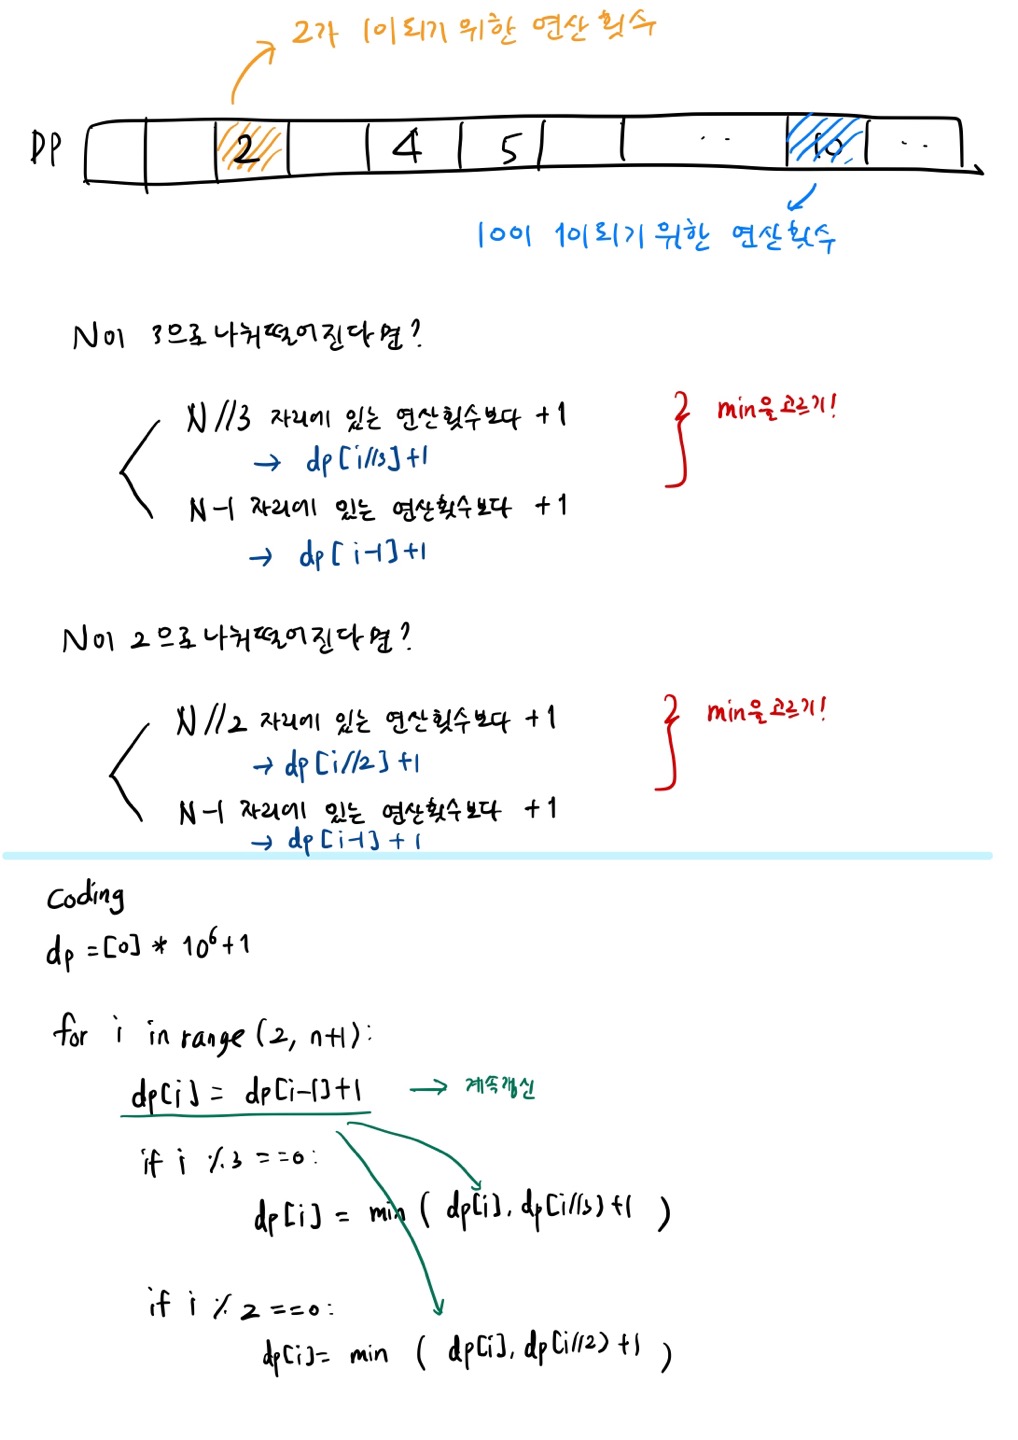 2가 1이되기 위한 연산 횟수
DP 2 4 5 ‥ 10 ‥
10이 1이되기 위한 연산횟수
N이 3으로 나눠떨어진다면?
N//3 자리에 있는 연산횟수보다 +1
min을고르기!
→ dp[i//3]+1
N-1 자리에 있는 연산횟수보다 +1
→ dp[i-1]+1
N이 2으로 나눠떨어진다면?
N//2 자리에 있는 연산횟수보다 +1
min을고르기!
→ dp[i//2]+1
N-1 자리에 있는 연산횟수보다 +1
→ dp[i-1]+1
Coding
dp = [0] * 10⁶+1
for i in range (2, n+1):
dp[i] = dp[i-1]+1 → 계속갱신
if i % 3 == 0:
dp[i] = min ( dp[i], dp[i//3)+1 )
if i % 2 == 0:
dp[i]= min ( dp[i], dp[i//2)+1 )